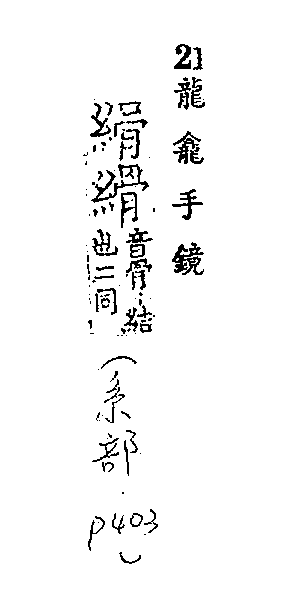 21 龍龕手鏡
縎
音骨〻結
也二同
(糸部.p403)